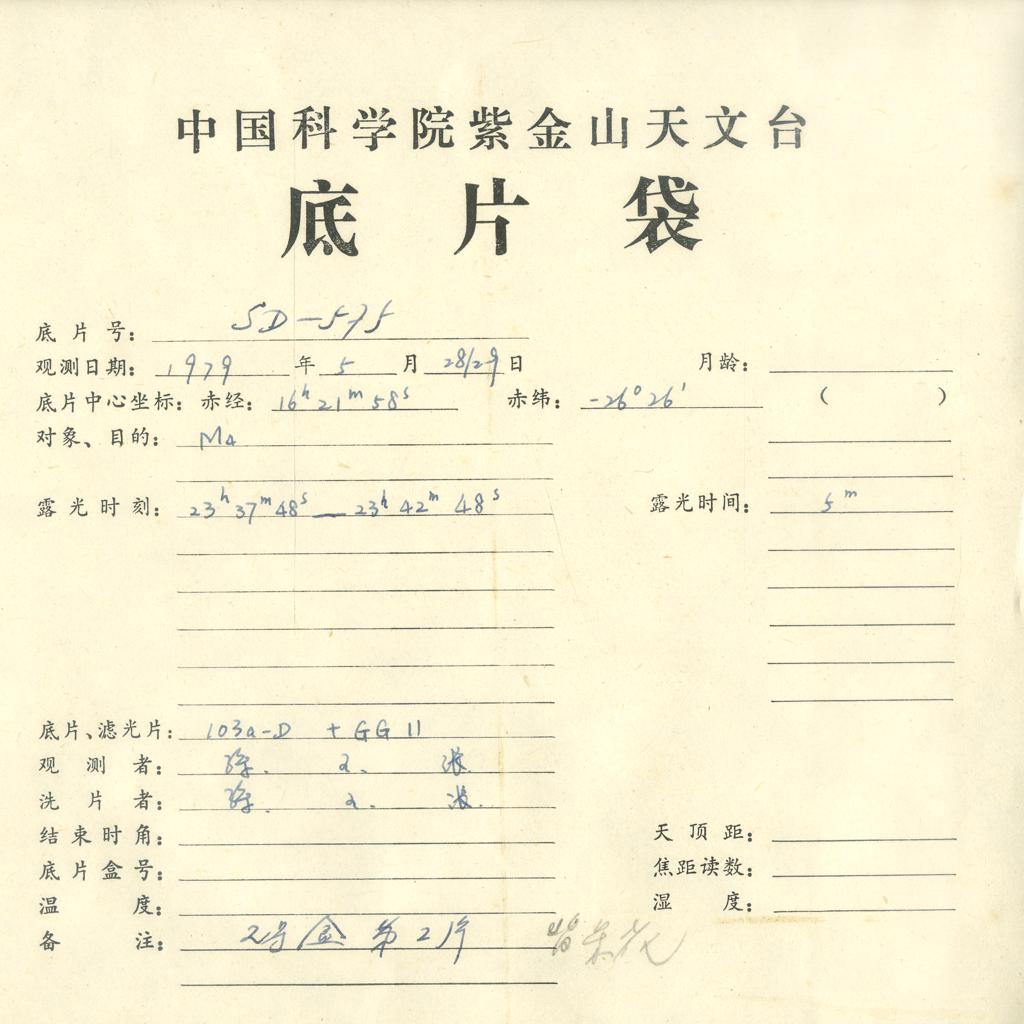 中国科学院紫金山天文台
底片袋
底片号： SD-575
观测日期： 1979 年 5 月 28/29 日 月龄：
底片中心坐标：赤经： 16h 21m 58s 赤纬： -26° 26' ( )
对象、目的： M4
露光时刻： 23h 37m 48s — 23h 42m 48s 露光时间： 5m
底片、滤光片： 103a-D + GG 11
观测者： 张
洗片者： 张
结束时角： 天顶距：
底片盒号： 焦距读数：
温度： 湿度：
备注： 2号盒 第2片